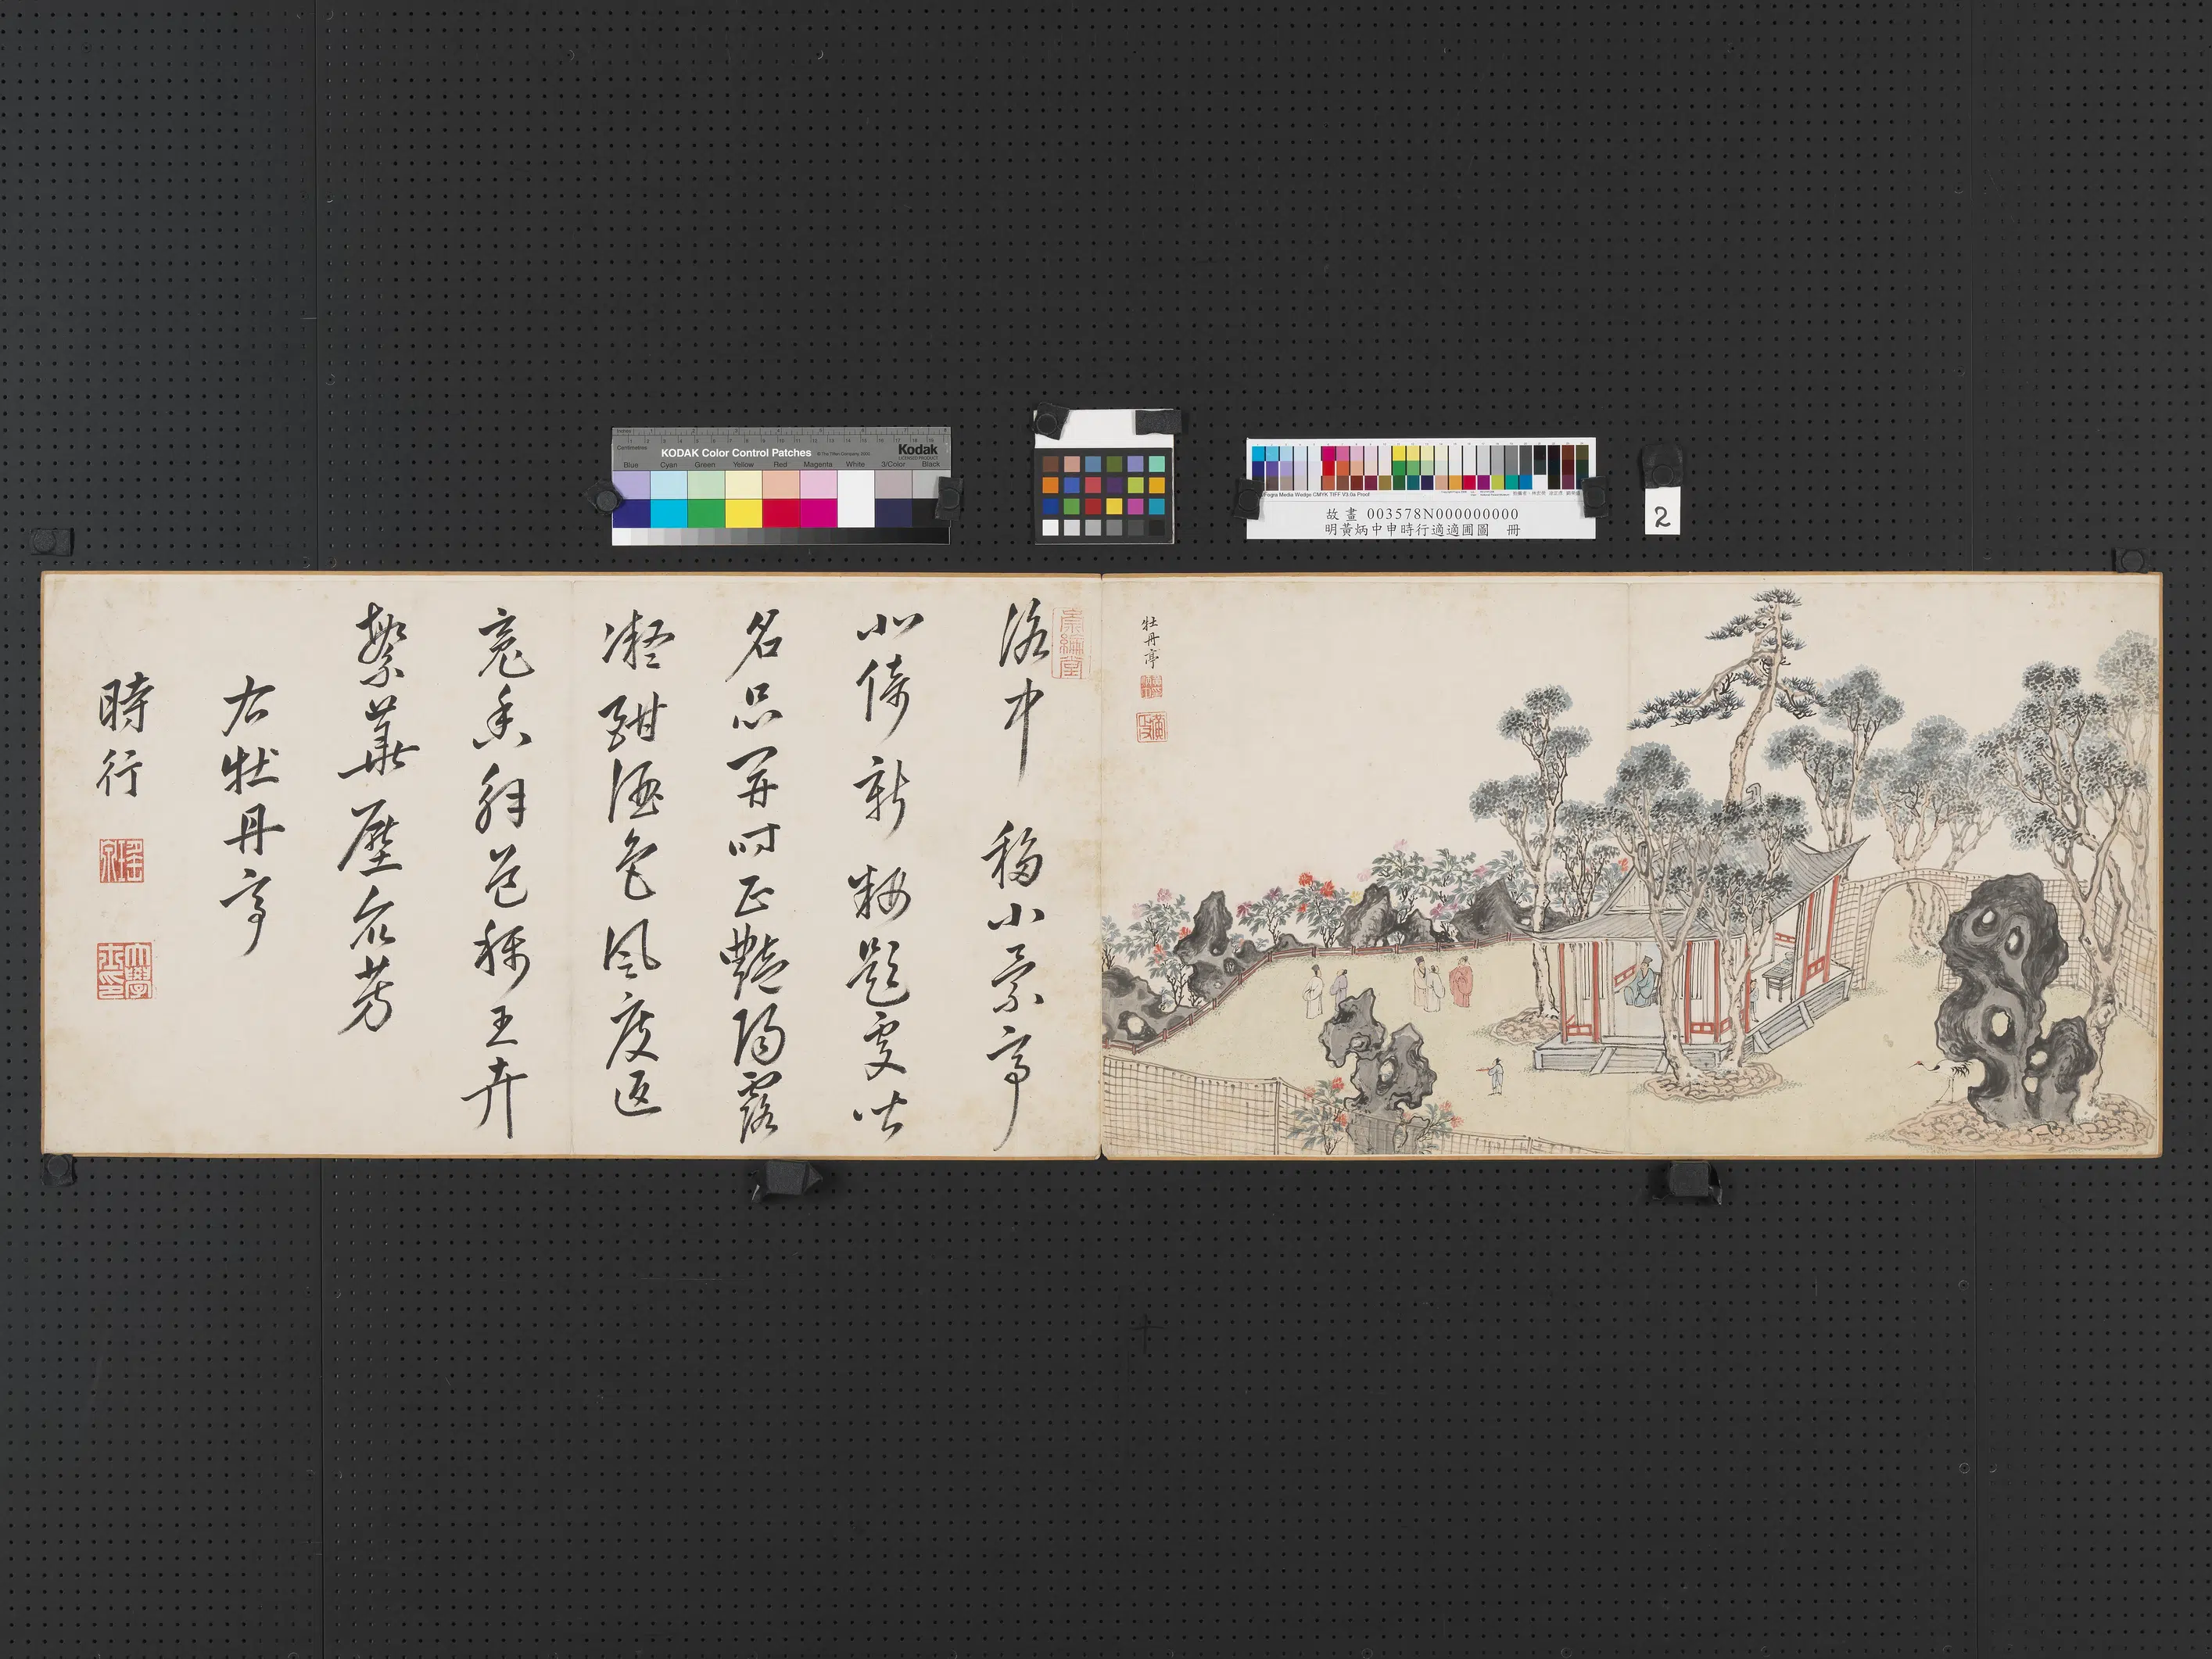 Inches
Centimetres
KODAK Color Control Patches
© The Tiffen Company, 2000
Kodak
LICENSED PRODUCT
Blue Cyan Green Yellow Red Magenta White 3/Color Black
Fogra Media Wedge CMYK TIFF V3.0a Proof
故畫 003578N000000000
明黃炳中申時行適適圃圖 冊
2
牡丹亭
洛中移小景亭
北倚新粧題處皆
名品開時正艷陽露
凝酣酒色風度返
魂香稱王卉
繁華壓眾芳
右牡丹亭
時行
瑤泉
大學士印